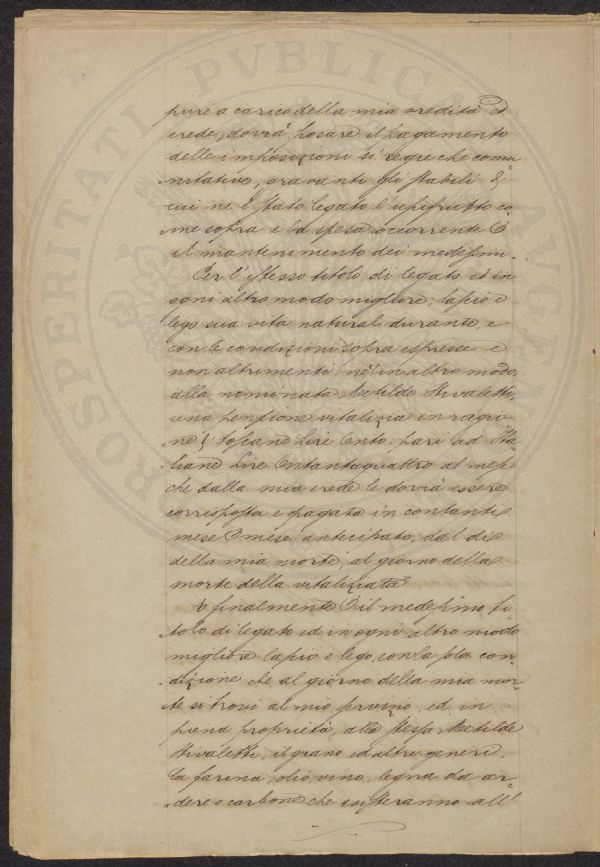 PROSPERITATI PVBLICAE AVGENDAE
pure a carico della mia eredità ed
erede, dovrà posare il pagamento
delle imposizioni sì regie che comu-
nitative, gravanti gli stabili di
cui ne è stato legato l'usufrutto co-
me sopra e la spesa occorrente P
il mantenimento dei medesimi.
Per l'istesso titolo di legato ed in
ogni altro modo migliore, lascio e
lego sua vita natural durante, e
con le condizioni sopra espresse e
non altrimenti nè in altro modo,
alla nominata Metilde Stivaletti,
una pensione vitalizia in ragio-
ne di Toscane Lire Cento, pari ad Ita-
liane Lire Ottantaquattro al mese
che dalla mia erede le dovrà essere
corrisposta e pagata in contanti
mese P mese anticipato, dal dì
della mia morte, al giorno della
morte della vitaliziata
E finalmente P il medesimo ti-
tolo di legato ed in ogni altro modo
migliore lascio e lego, con la sola con-
dizione che al giorno della mia mor-
te si trovi al mio servizio, ed in
piena proprietà, alla stessa Metilde
Stivaletti, il grano ed altri generi,
la farina, olio, vino, legna da ar-
dere e carbone che esisteranno all'